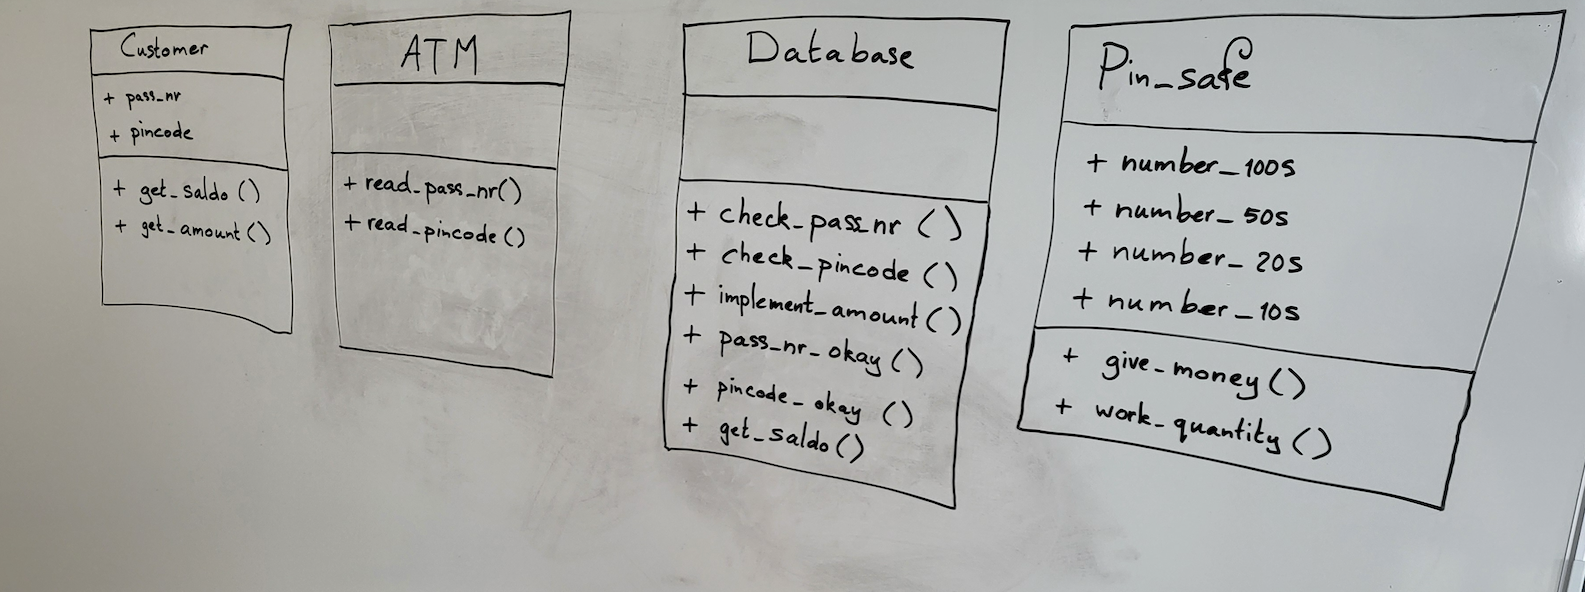 Customer
+ pass_nr
+ pincode
+ get_saldo ()
+ get_amount ()
ATM
+ read_pass_nr()
+ read_pincode ()
Database
+ check_pass_nr ()
+ check_pincode ()
+ implement_amount ()
+ pass_nr_okay ()
+ pincode_okay ()
+ get_saldo ()
Pin_safe
+ number_100s
+ number_50s
+ number_20s
+ number_10s
+ give_money ()
+ work_quantity ()